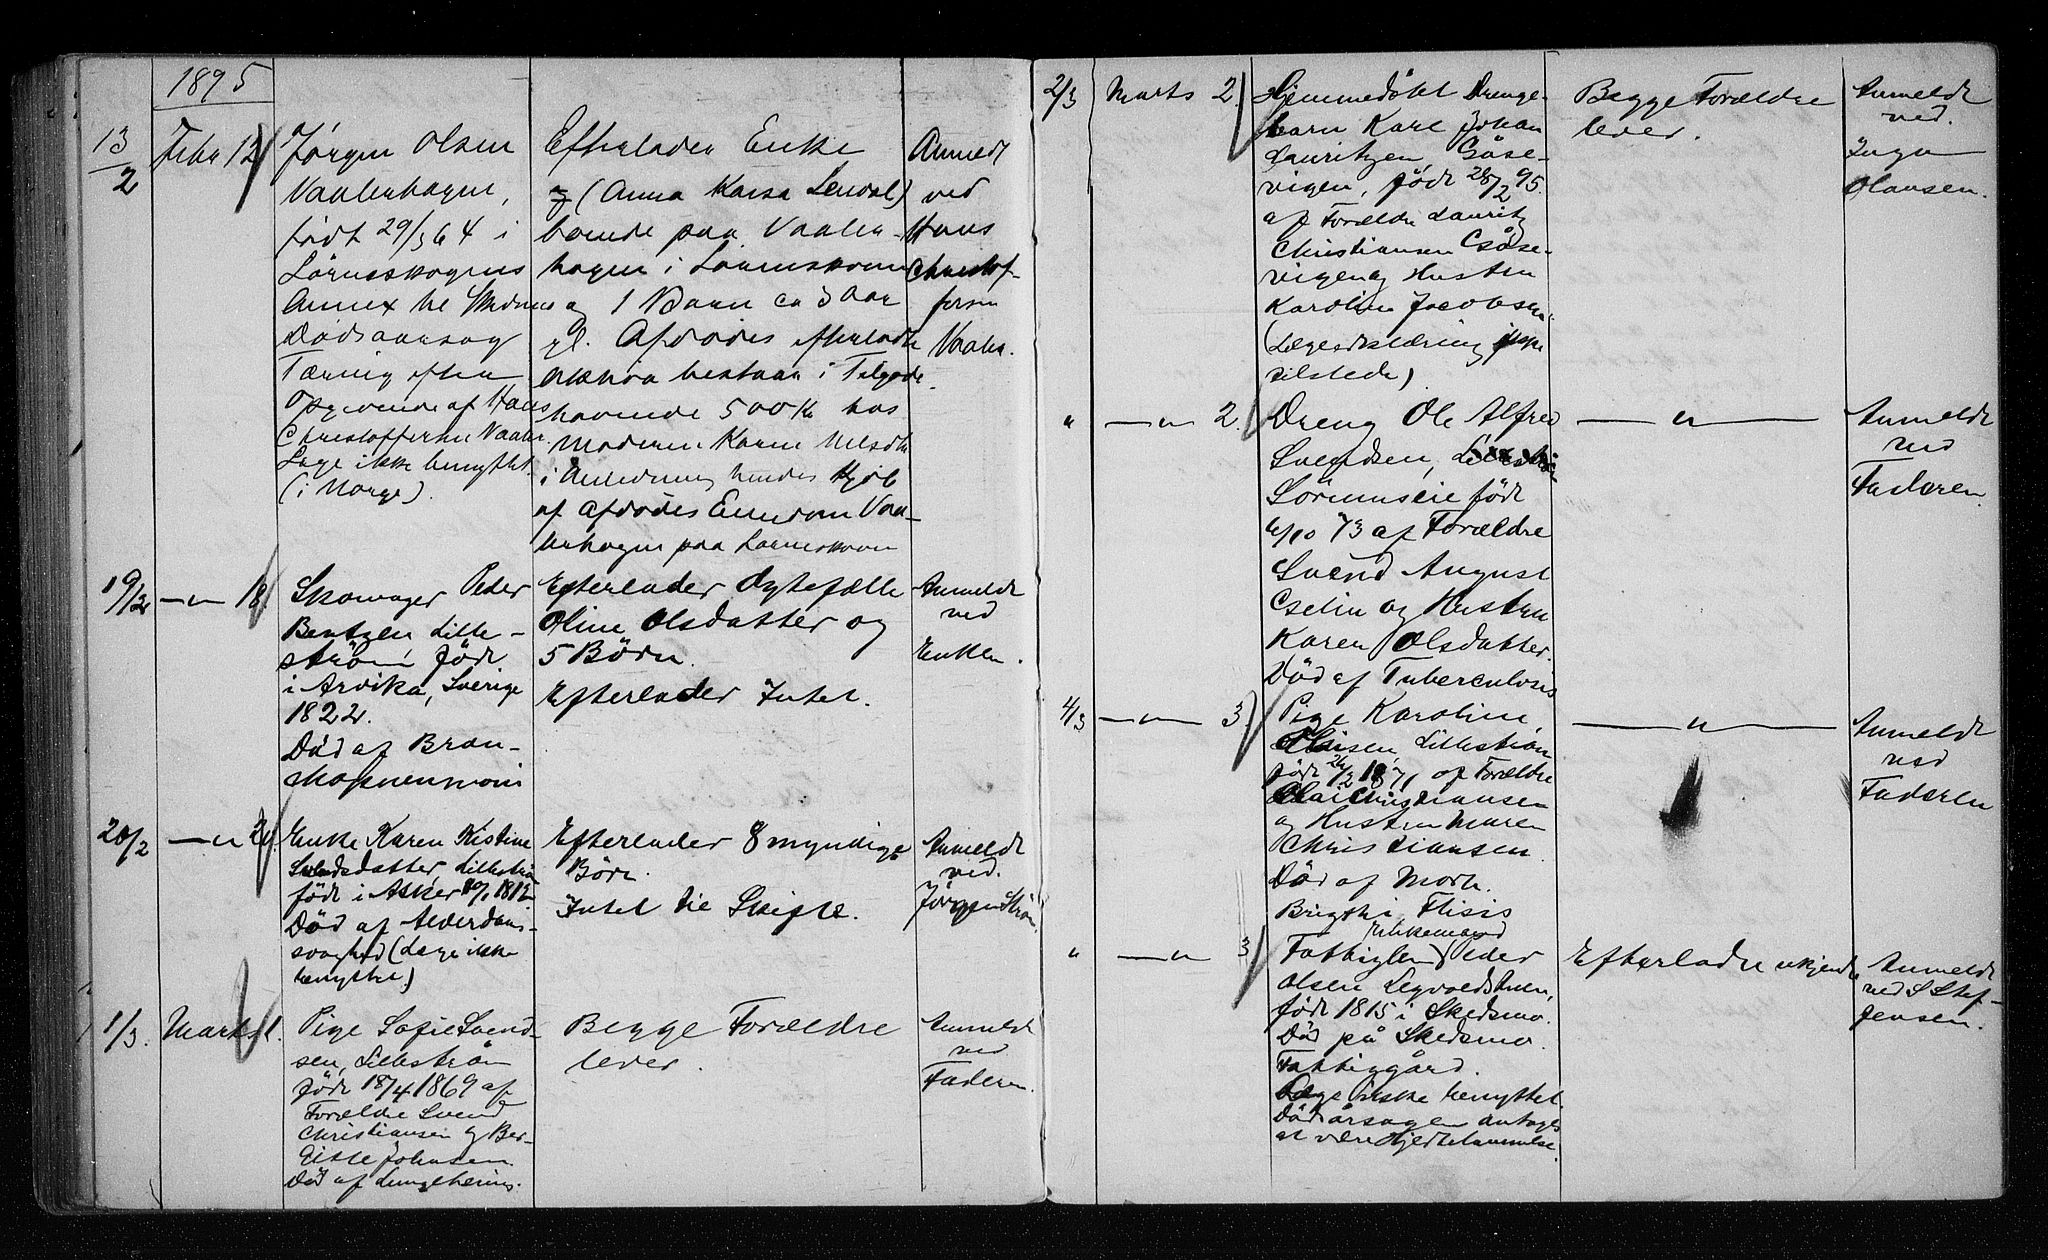 1895
13/2
Febr 12
Jørgen Olsen
Vaalerhagen,
født 29/3 64 i
Lørenskogens
Annex til Skedsmo
Dødsaarsag
Tæring efter
Opgivende af Hans
Christoffersen Vaaler.
Læge ikke benyttet.
(i Norge).
Efterlader Enke
(Anna Kaisa Lendal)
boende paa Vaaler-
hagen i Lørenskoven
og 1 Barn ca 3 aar
gl. Afdødes efterladte
bestaar i Tilgode-
havende 500 Kr hos
Moderen Karen Nilsdtr
i Anledning hendes Kjøb
af Afdødes Eiendom Vaa-
lerhagen paa Lørenskoven
Anmeldt
ved
Hans
Christof-
fersen
Vaaler.
19/2 — " — 18.
Skomager Peder
Bentzen, Lille-
strøm, født
i Arvika, Sverige
1822.
Død af Bron-
Efterlader Ægtefælle
Oline Olsdatter og
5 Børn.
Efterlader Intet.
Anmeldt
ved
Enken.
20/2 — " — 20.
Enke Karen Kistine
Svendsdatter, Lillestrøm
født i Asker 1812
Død af Alderdoms-
svaghed (Læge ikke
benyttet)
Efterlader 8 myndige
Børn.
Intet til Skifte.
Anmeldt
ved.
Jørgen Strøm
1/3. Marts 1.
Pige Sofie Svend-
sen, Lillestrøm
født 18/4 1869 af
Forældre Svend
Christiansen og Ber-
gitte Johnsen.
Død af Lungebetæn.
Begge Forældre
lever.
Anmeldt
ved
Faderen.
2/3 Marts 2.
Hjemmedøbt Drenge-
barn Karl Johan
Lauritzen,
vigen, født 28/2 95.
af Forældre Lauritz
Christiansen
vigen og Hustru
Karoline Jacobsen
(Lægeerklæring ikke
tilstede)
Begge Forældre
lever.
Anmeldt
ved.
Inga
Hansen.
" — " — 2.
Dreng Ole Alfred
Svendsen,
Sørumseie født
6/10 73 af Forældre
Svend August
og Hustru
Karen Olsdatter.
Død af Tuberculosis
— " —
Anmeldt
ved
Faderen
4/3 — " — 3.
Pige Karoline
Lillestrøm
født 26/2 1871 af Forældre
Christiansen
og Hustru Maren
Christiansen.
Død af Morb.
Brigthi, Ftisis
— " —
Anmeldt
ved
Faderen
" — " — 3.
Enkemand
Fattiglem Peder
Olsen
født 1815 i Skedsmo.
Død på Skedsmo
Fattiggård.
Læge ikke benyttet.
Dødsårsagen antages
at være Hjertelammelse.
Efterladte ukjendte
Anmeldt
ved S Stef-
fensen.